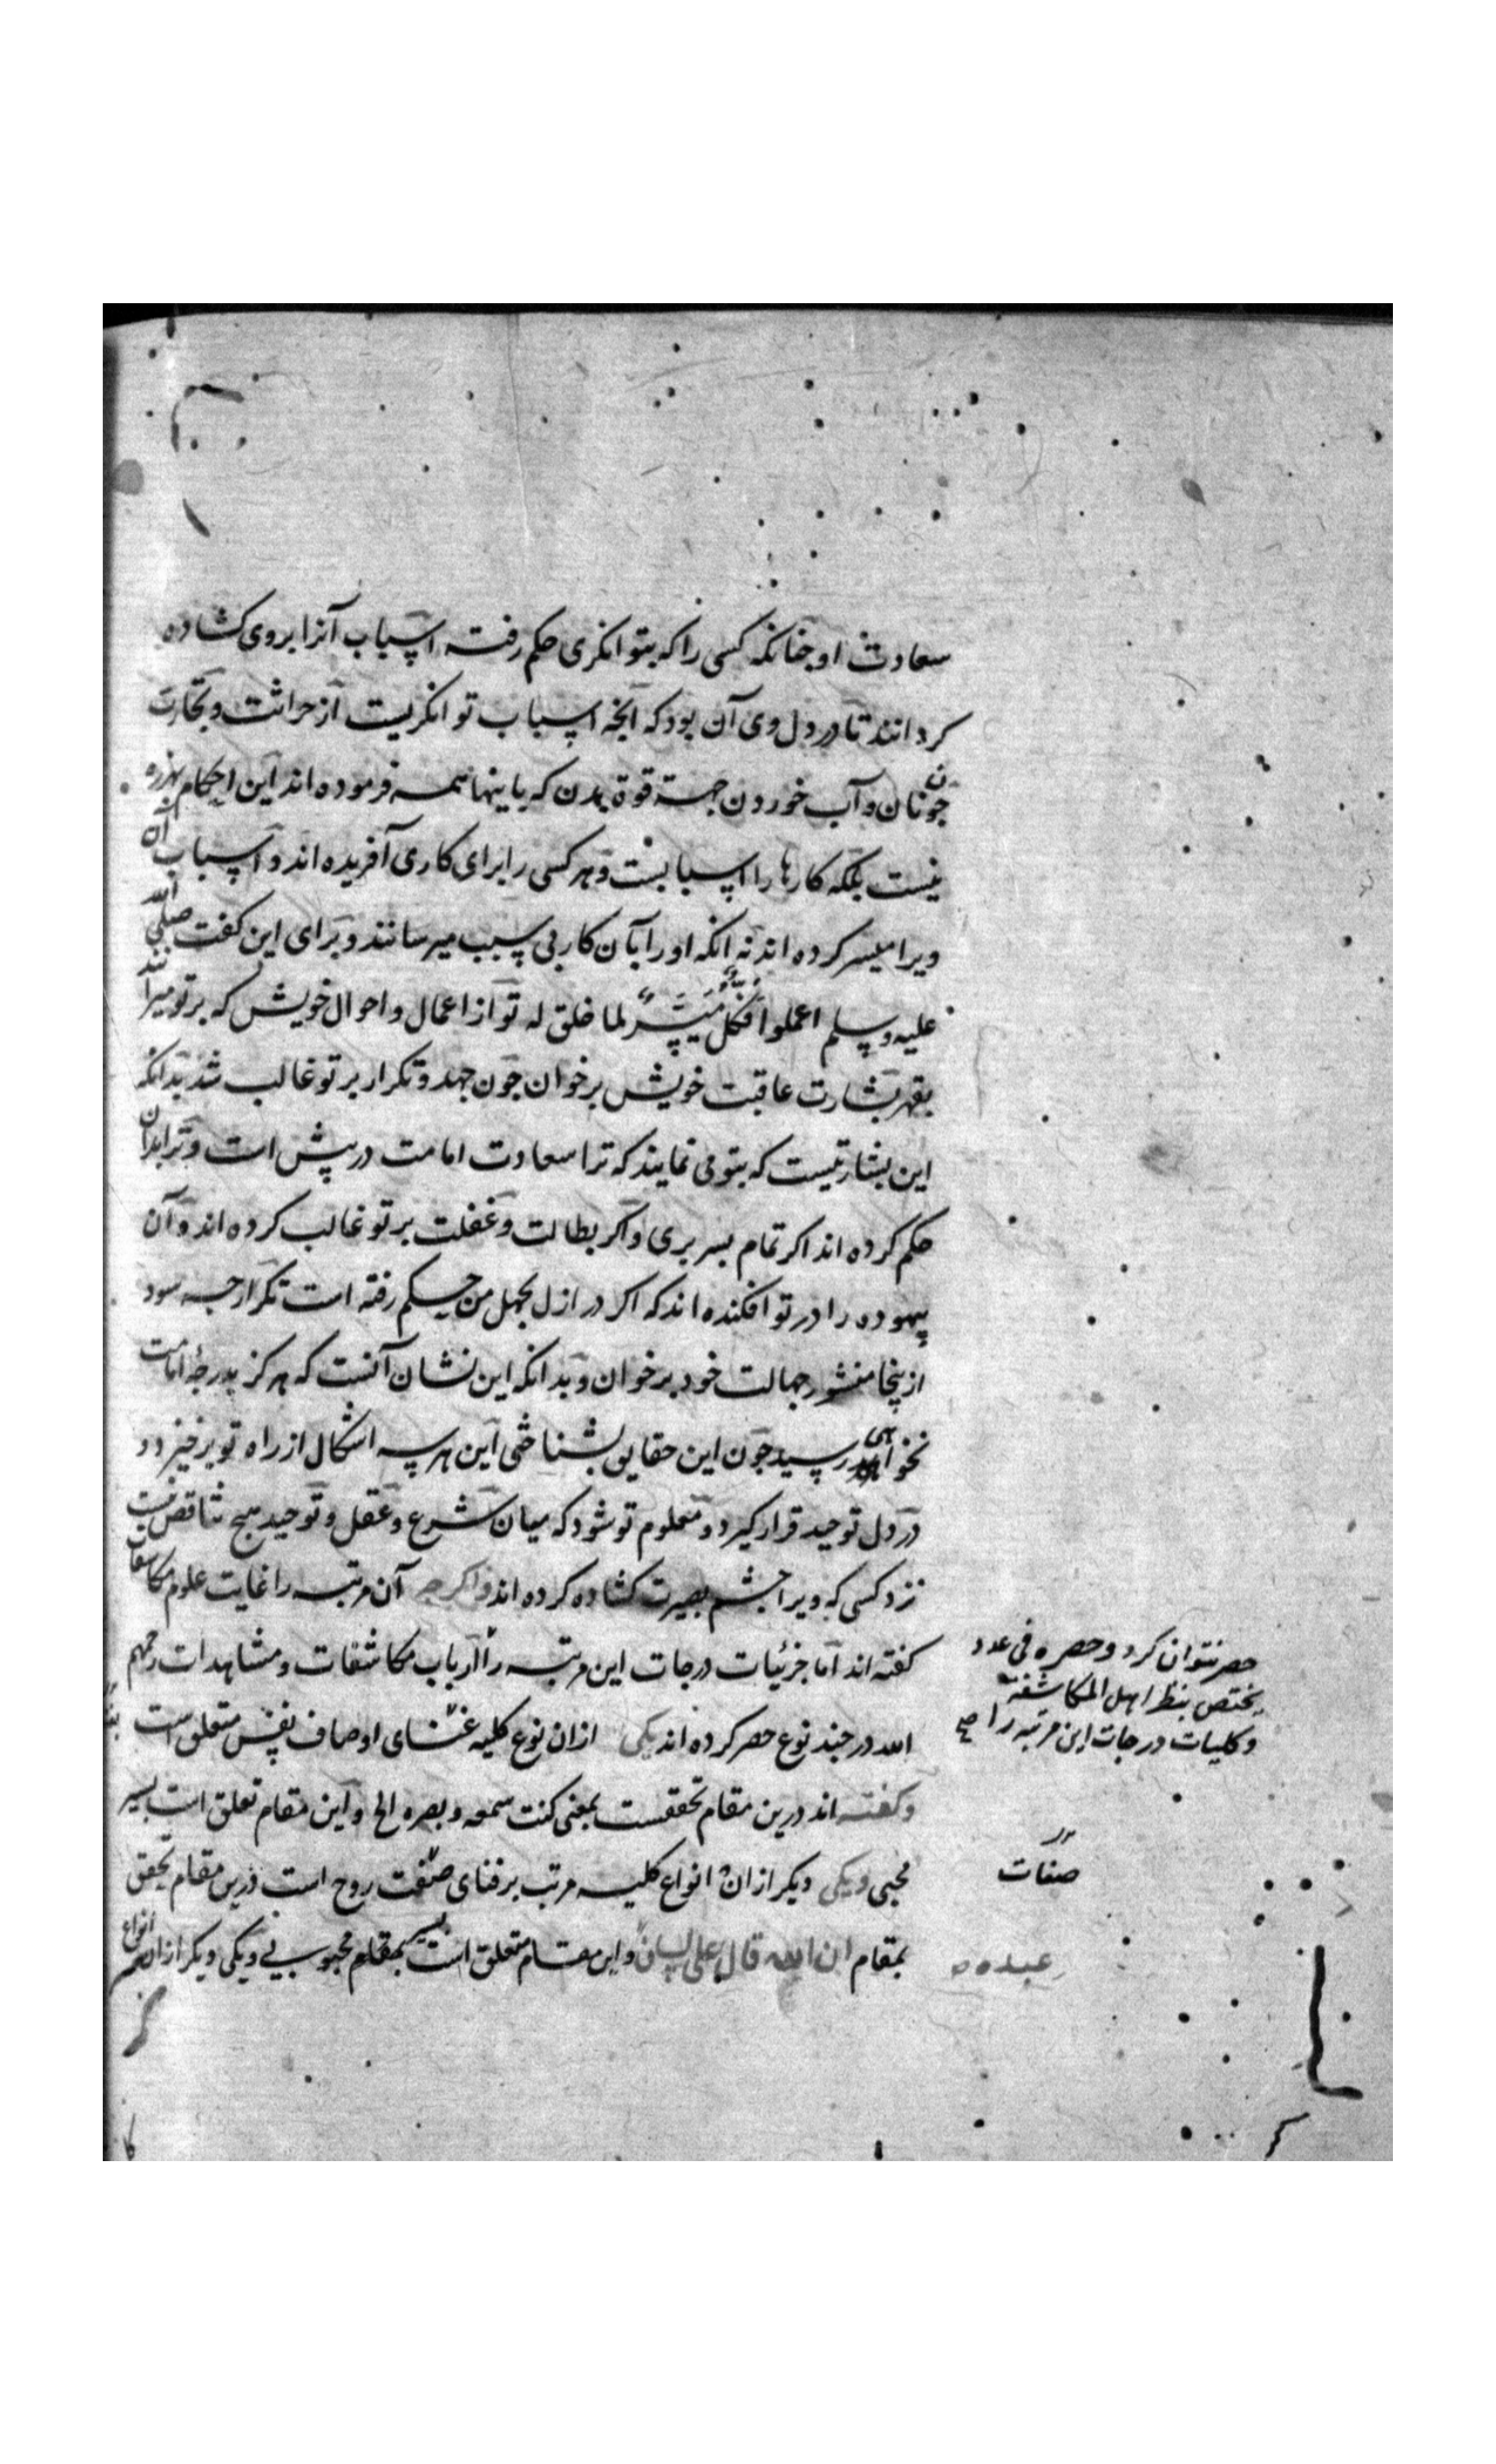 سعادت او چنانکه کسی را که بتوانکری حکم رفته اسباب آنرا بروی کشاده
کردانند تا در دل وی آن بود که آنچه اسباب توانکریست از حراثت و تجارت
چون نان و آب خوردن جهة قوة بدن که باینها همه فرموده اند این احکام بهرزه
نیست بلکه کارها را اسبابست و هر کسی را برای کاری آفریده اند و اسباب آن
ویرا میسر کرده اند نه انکه او را بآن کار بی سبب میرسانند و برای این کفت صلی الله
علیه و سلم اعملوا فکل میسر لما خلق له تو از اعمال و احوال خویش که بر تو میرانند
بقهر بشارت عاقبت خویش برخوان چون جهد و تکرار بر تو غالب شد بدانکه
این بشارتیست که بتو می نمایند که ترا سعادت امامت در پیش است و ترا بدان
حکم کرده اند اکر تمام بسر بری و اکر بطالت و غفلت بر تو غالب کرده اند و آن
بیهوده را در تو افکنده اند که اکر در ازل بجهل من حکم رفته است تکرار چه سود
ازینجا منشور جهالت خود برخوان و بدانکه این نشان آنست که هرکز بدرجهٔ امامت
نخواهی رسید چون این حقایق بشناختی این هر سه اشکال از راه تو برخیزد و
در دل توحید قرار کیرد و معلوم تو شود که میان شرع و عقل و توحید هیچ تناقض نیست
نزد کسی که ویرا چشم بصیرت کشاده کرده اند و اکرچه آن مرتبه را غایت علوم مکاشفات
کفته اند اما جزئیات درجات این مرتبه را ارباب مکاشفات و مشاهدات رحمهم
حصر نتوان کرد و حصره فی عدد
یختص بنظر اهل المکاشفة
و کلیات درجات این مرتبه را صح
الله در چند نوع حصر کرده اند یکی ازان نوع کلیه فنای اوصاف نفس متعلق است
و کفته اند درین مقام تحققست بمعنی کنت سمعه و بصره الخ و این مقام تعلق است بسیر
محبی و یکی دیکر ازان انواع کلیه مرتب بر فنای صفت روح است درین مقام تحقق
صفات
بمقام ان الله قال علی لسان و این مقام متعلق است بسیر محبوبی و یکی دیکر ازان انواع
عبده